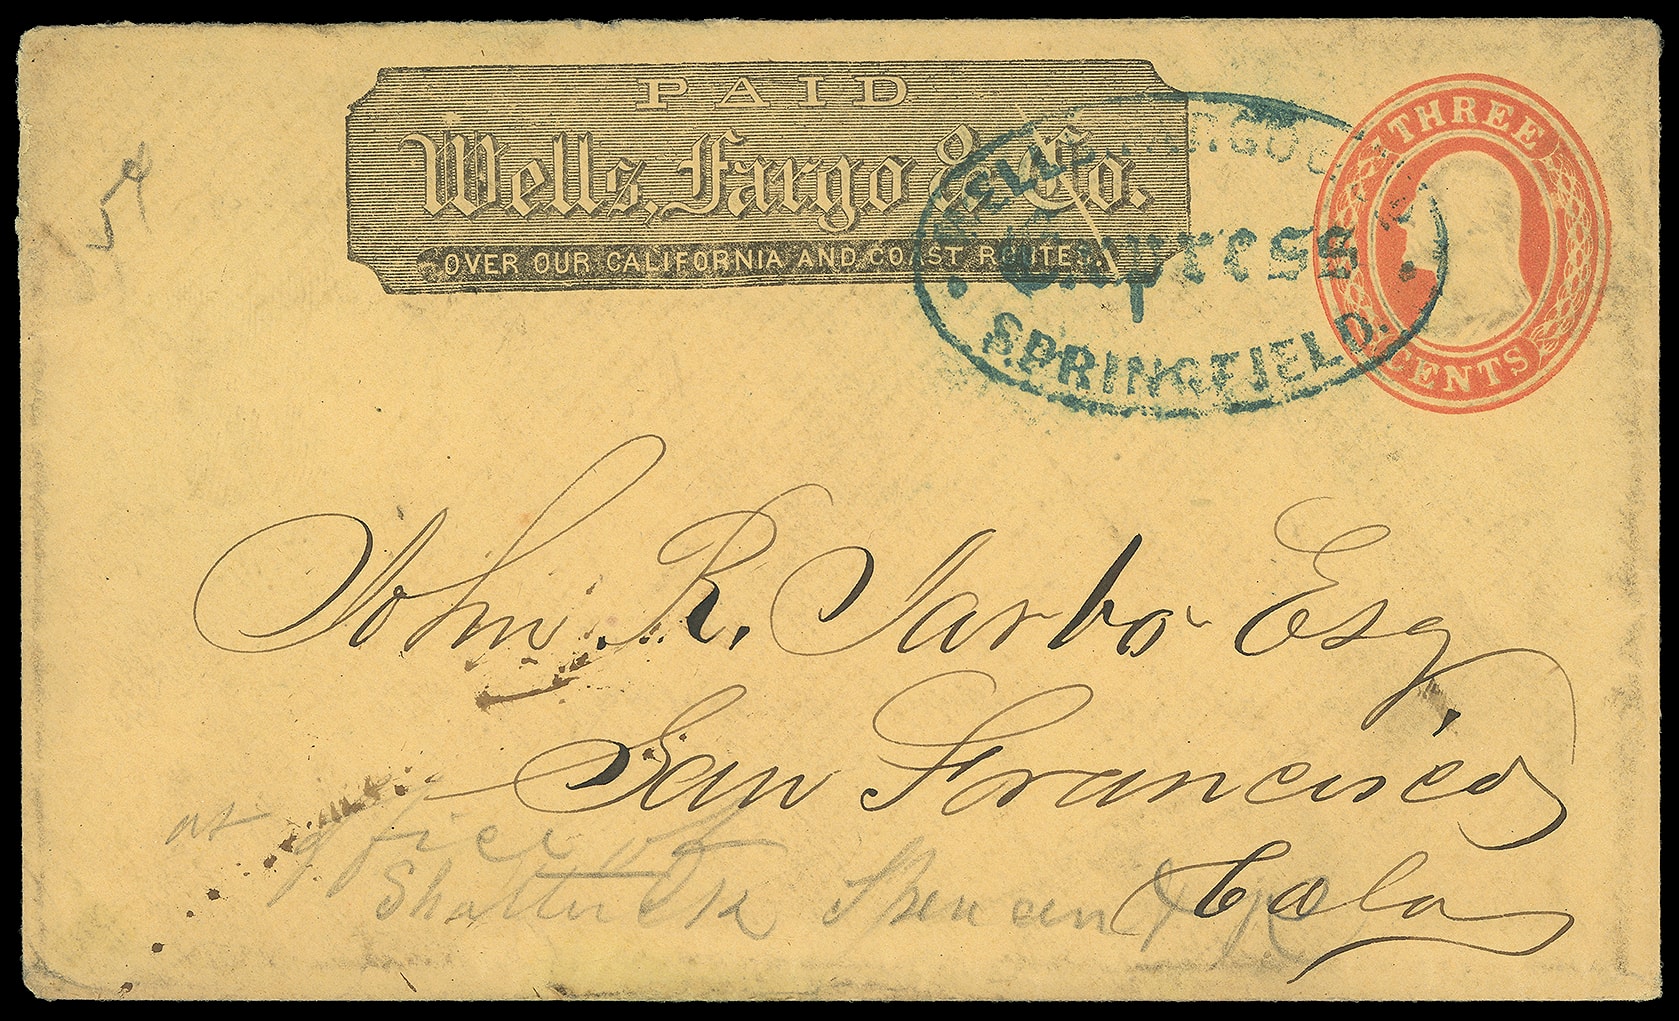 PAID
Wells, Fargo & Co.
OVER OUR CALIFORNIA AND COAST ROUTES.
WELLS FARGO & CO
Express
SPRINGFIELD.
THREE
CENTS
54
John R. Jarbo Esq,
San Francisco
Cala
at office of
Shattuck Spencer &